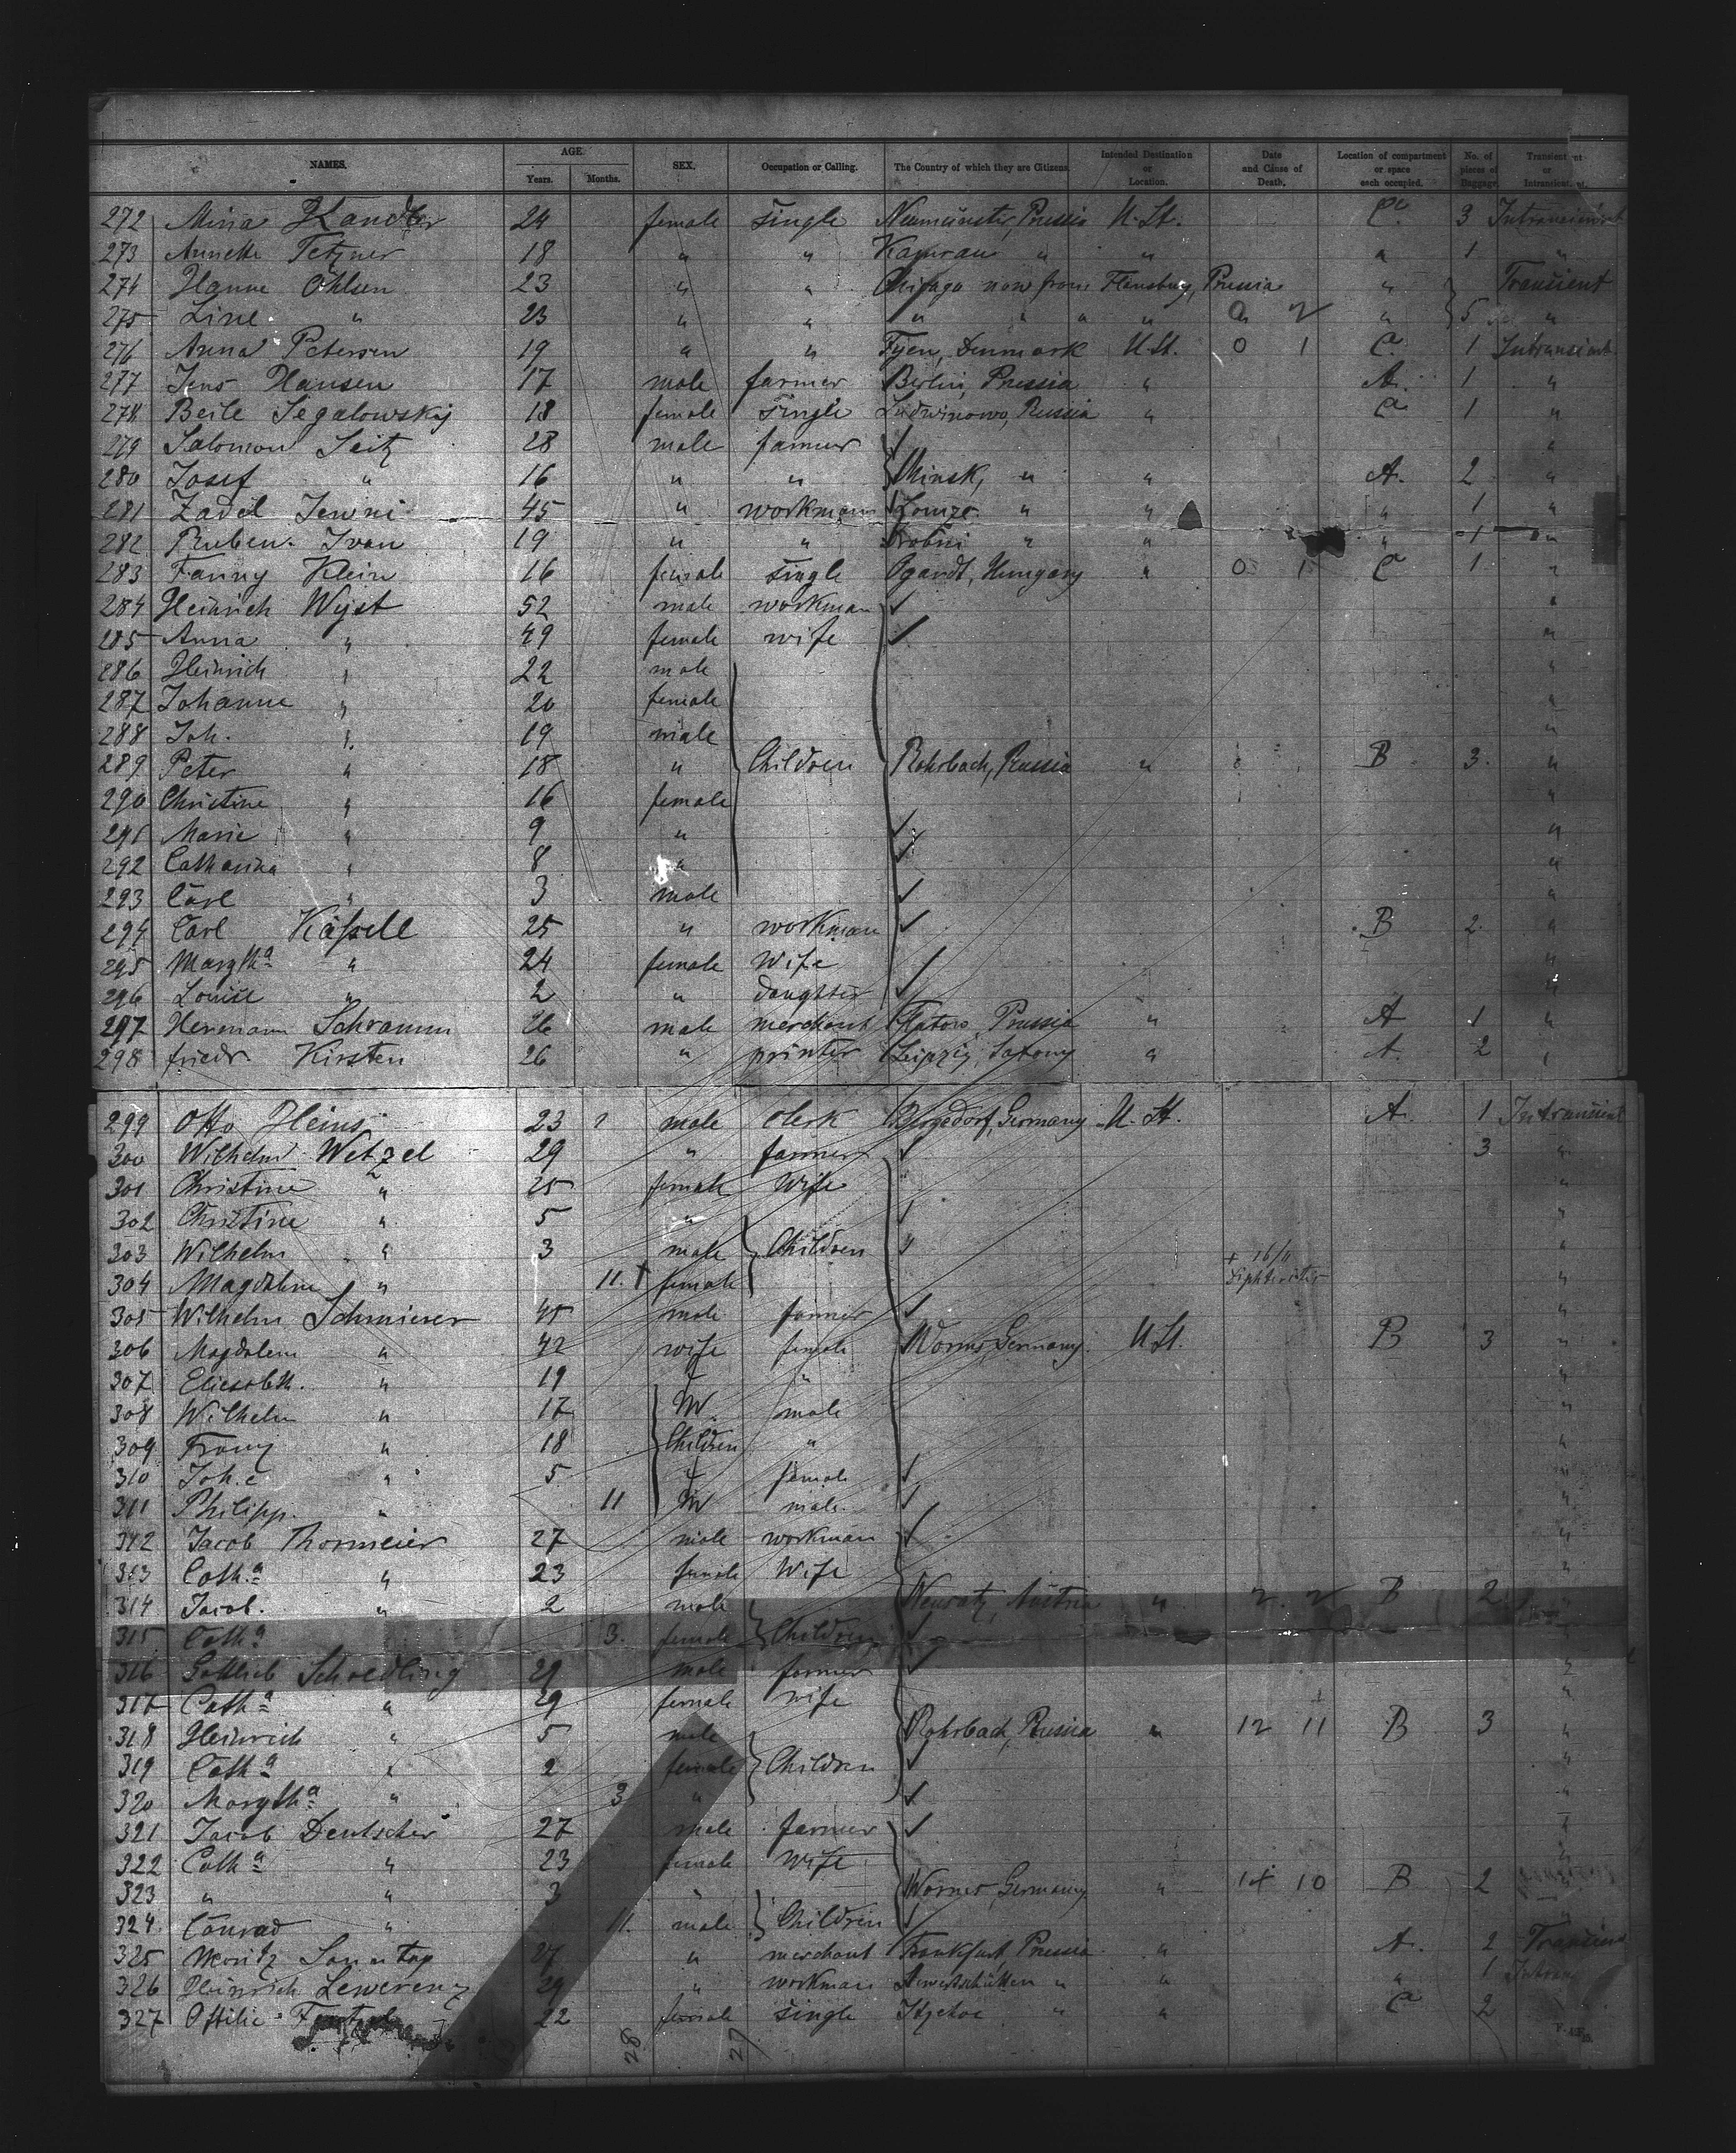 NAMES. AGE. Years. Months. SEX. Occupation or Calling. The Country of which they are Citizens. Intended Destination or Location. Date and Cause of Death. Location of compartment or space each occupied. No. of pieces of Baggage. Transient or Intransient.
272 Mina Handler 24 female single Neumünster, Prussia U. St. C. 3 Intransient
273 Annette Tetzner 18 " " " " " 1 "
274 Hanne Ohlsen 23 " " Chicago now from Flensburg, Prussia " Transient
275 Line " 23 " " " " " " " 5 "
276 Anna Petersen 19 " " Fyen, Denmark U. St. 0 1 C. 1 Intransient
277 Jens Hansen 17 male farmer Berlin, Prussia " A. 1 "
278 Beile Segalowskij 18 female single Ludwinowo, Russia " C. 1 "
279 Salomon Seitz 28 male farmer "
280 Josef " 16 " " Minsk, " " A. 2 "
281 Zadel Jewni 45 " workman Lomze " " " 1 "
282 Ruben Ivan 19 " " " " " 1 "
283 Fanny Klein 16 female single Hungary " 0 1 C 1 "
284 Heinrich Wyst 52 male workman "
285 Anna " 49 female wife "
286 Heinrich " 22 male "
287 Johanne " 20 female "
288 Joh. " 19 male "
289 Peter " 18 " Children Rohrbach, Russia " B 3. "
290 Christine " 16 female "
291 Marie " 9 " "
292 Catharina " 8 " "
293 Carl " 3 male "
294 Carl Käfsell 25 " workman B 2. "
295 Margtha " 24 female Wife "
296 Louise " 2 " daughter "
297 Hermann Schramm 26 male merchant Flatow, Prussia " A 1 "
298 friedr. Kirsten 26 " printer Leipzig, Saxony " A. 2 "
299 Otto Heins 23 male clerk Bergedorf, Germany U. St. A. 1 Intransient
300 Wilhelm Wetzel 29 " farmer 3 "
301 Christine " 25 female Wife "
302 Christine " 5 " "
303 Wilhelm " 3 male Children "
304 Magdalene " 11. † female † 16/11 "
305 Wilhelm Schmierer 45 male farmer "
306 Magdalena " 42 wife female Worms, Germany. U. St. B 3 "
307 Eliesabeth. " 19 f " "
308 Wilhelm " 17 M. male "
309 Franz " 18 Children " "
310 Joh.e " 5 f female "
311 Philipp. " 11 M male "
312 Jacob Thormeier 27 male workman "
313 Cath.a " 23 female Wife "
314 Jacob. " 2 male Neusatz, Austria " B 2 "
315 Catha 3. female Children
316 Gottlieb Schoedling 29 male farmer "
317 Catha " 29 female wife "
318 Heinrich " 5 male Rohrbach, Russia " 12 11 B 3 "
319 Catha " 2 female Children "
320 Margtha " 3 " "
321 Jacob Deutscher 27 male farmer "
322 Catha " 23 female wife "
323 " " 3 " Worms, Germany " 14 10 B 2
324. Conrad " 11. male Children "
325 Moritz Sonntag 27 " merchant Frankfurt, Prussia " A. 2 Transient
326 Heinrich Lewerenz 29 " workman " " " 1
327 Ottilie 22 female single Itzehoe " " C 2
28 27